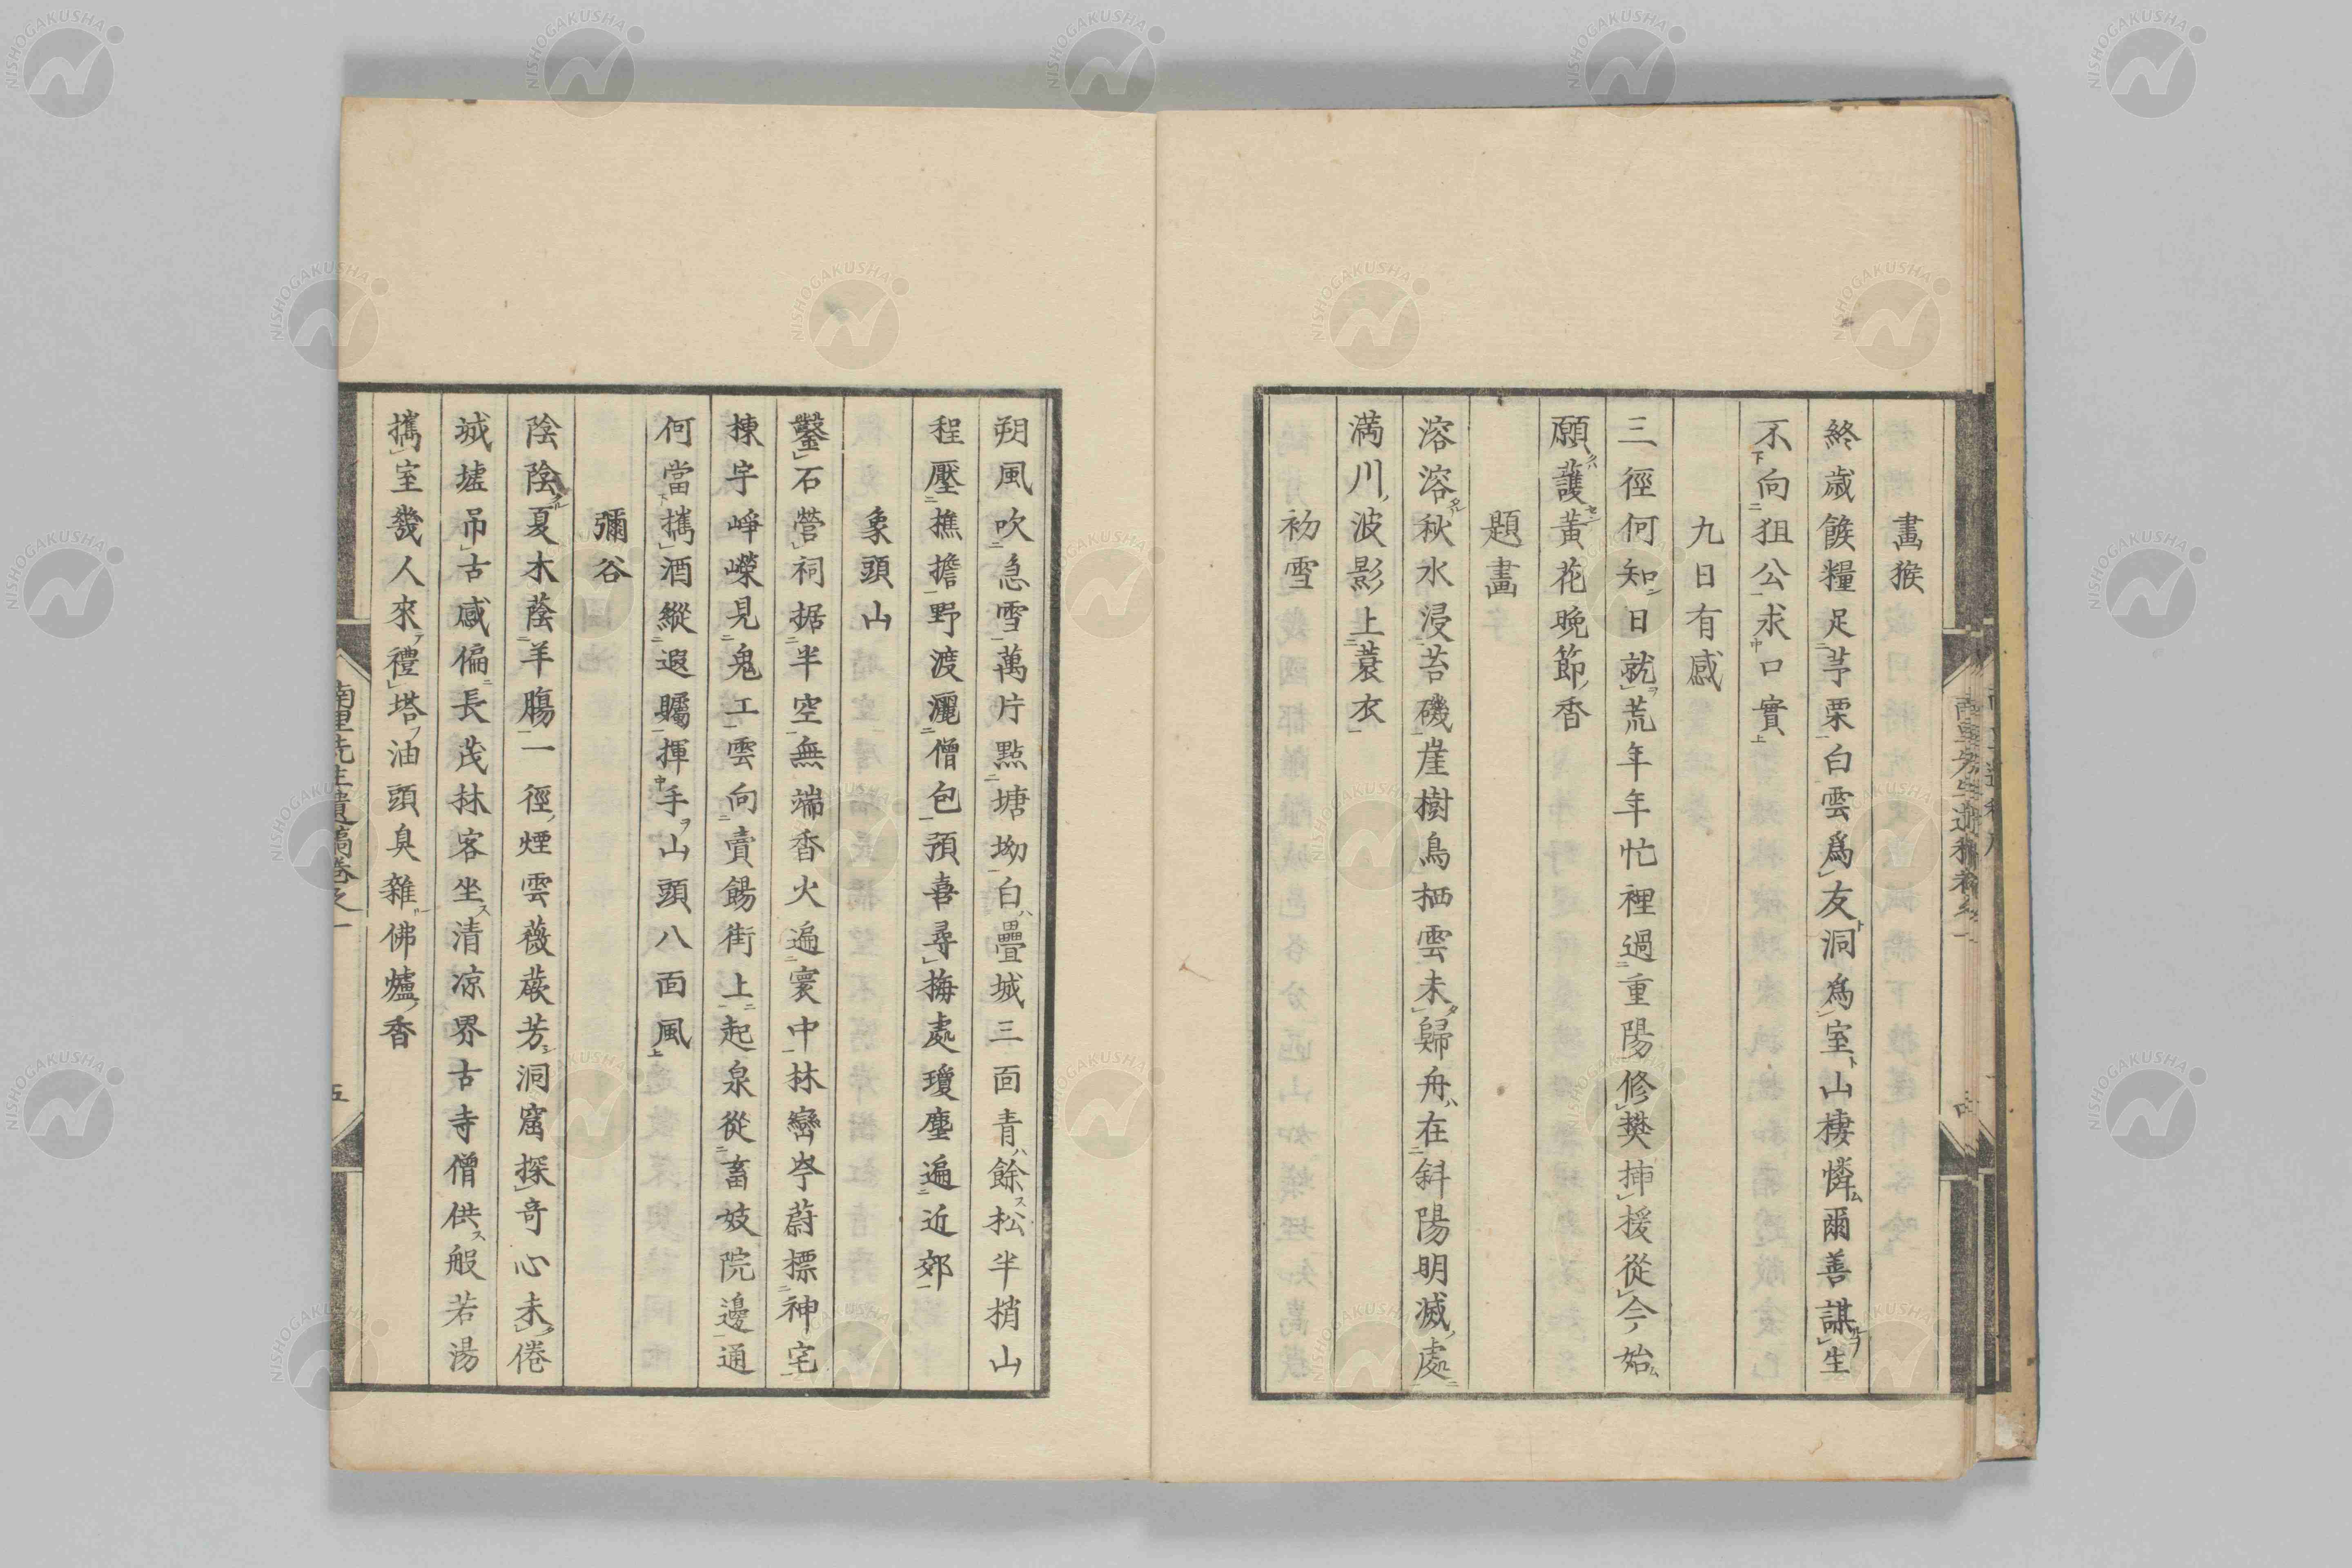 畫猴
終歳餱糧足芧栗白雲爲友洞爲室山棲憐爾善謀生
不向狙公求口實
九日有感
三徑何知日就荒年年忙裡過重陽修樊揷援從今始
願護黃花晩節香
題畫
溶溶秋水浸苔磯崖樹鳥栖雲未歸舟在斜陽明滅處
滿川波影上蓑衣
初雪
朔風吹急雪萬片點塘坳白疊城三面青餘松半梢山
程壓樵擔野渡灑僧包預喜尋梅處瓊塵遍近郊
象頭山
鑿石營祠据半空無端香火遍寰中林巒岑蔚標神宅
棟宇崢嶸見鬼工雲向賣餳街上起泉從畜妓院邊通
何當攜酒縱遐矚揮手山頭八面風
彌谷
陰陰夏木蔭羊腸一徑煙雲薇蕨芳洞窟探奇心未倦
城墟吊古感偏長茂林客坐清凉界古寺僧供般若湯
攜室幾人來禮塔油頭臭雜佛爐香
南里先生遺稿卷之一
五
NISHOGAKUSHA